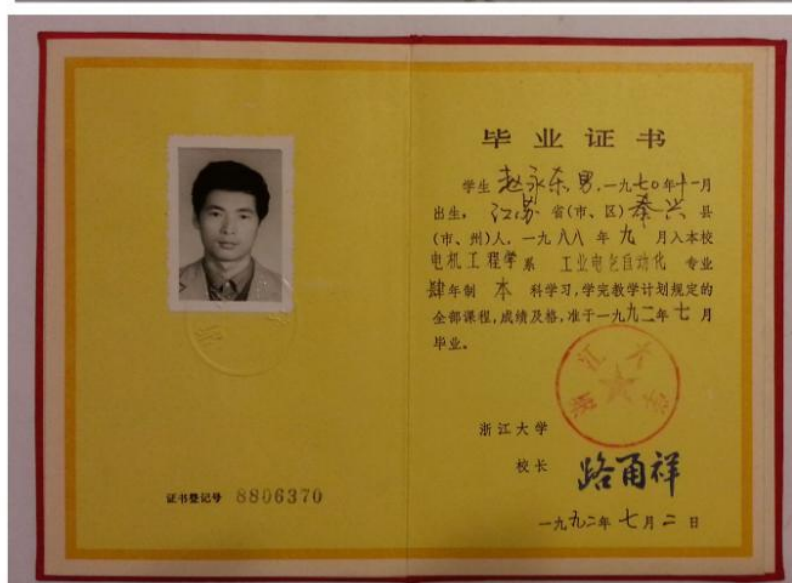 证书登记号 8806370
毕业证书
学生 赵永东, 男, 一九七〇年十一月
出生。 江苏 省(市、区) 泰兴 县
(市、州)人, 一九八八 年 九 月入本校
电机工程学 系 工业电气自动化 专业
肆年制 本 科学习, 学完教学计划规定的
全部课程, 成绩及格, 准于一九九二年 七 月
毕业。
浙江大学
浙江大学
校长 路甬祥
一九九二年 七 月 二 日